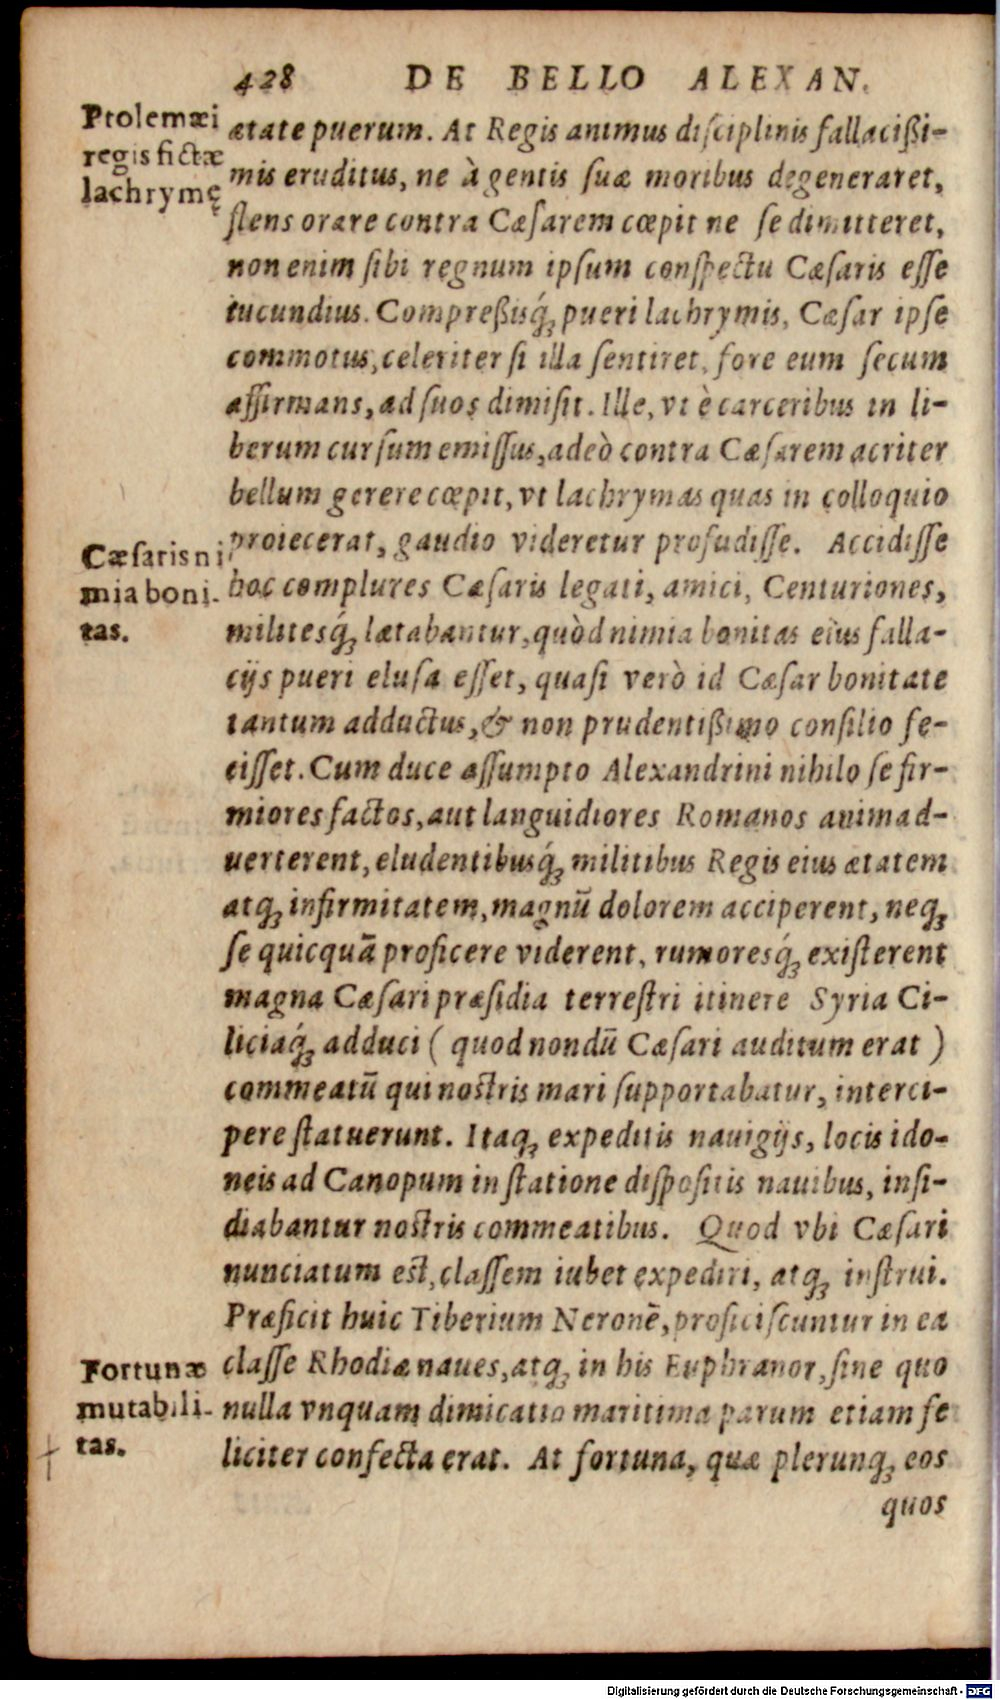 428 DE BELLO ALEXAN.
Ptolemæi
regis fictæ
lachrymę
ætate puerum. At Regis animus disciplinis fallacißi-
mis eruditus, ne à gentis suæ moribus degeneraret,
flens orare contra Cæsarem cœpit ne se dimitteret,
non enim sibi regnum ipsum conspectu Cæsaris esse
iucundius. Compreßisq́; pueri lachrymis, Cæsar ipse
commotus, celeriter si illa sentiret, fore eum secum
affirmans, ad suos dimisit. Ille, vt è carceribus in li-
berum cursum emissus, adeò contra Cæsarem acriter
bellum gerere cœpit, vt lachrymas quas in colloquio
proiecerat, gaudio videretur profudisse. Accidisse
Cæsaris ni
mia boni-
tas.
hoc complures Cæsaris legati, amici, Centuriones,
militesq́; lætabantur, quòd nimia bonitas eius falla-
cijs pueri elusa esset, quasi verò id Cæsar bonitate
tantum adductus, & non prudentißimo consilio fe-
cisset. Cum duce assumpto Alexandrini nihilo se fir-
miores factos, aut languidiores Romanos animad-
uerterent, eludentibusq́; militibus Regis eius ætatem
atq; infirmitatem, magnū dolorem acciperent, neq;
se quicquã proficere viderent, rumoresq́; existerent
magna Cæsari præsidia terrestri itinere Syria Ci-
liciaq́; adduci ( quod nondū Cæsari auditum erat )
commeatū qui nostris mari supportabatur, interci-
pere statuerunt. Itaq; expeditis nauigijs, locis ido-
neis ad Canopum in statione dispositis nauibus, insi-
diabantur nostris commeatibus. Quod vbi Cæsari
nunciatum est, classem iubet expediri, atq; instrui.
Præficit huic Tiberium Neronē, proficiscuntur in ea
Fortunæ
mutabili-
tas.
classe Rhodiæ naues, atq; in his Euphranor, sine quo
nulla vnquam dimicatio maritima parum etiam fe
liciter confecta erat. At fortuna, quæ plerunq; eos
quos
Digitalisierung gefördert durch die Deutsche Forschungsgemeinschaft - DFG